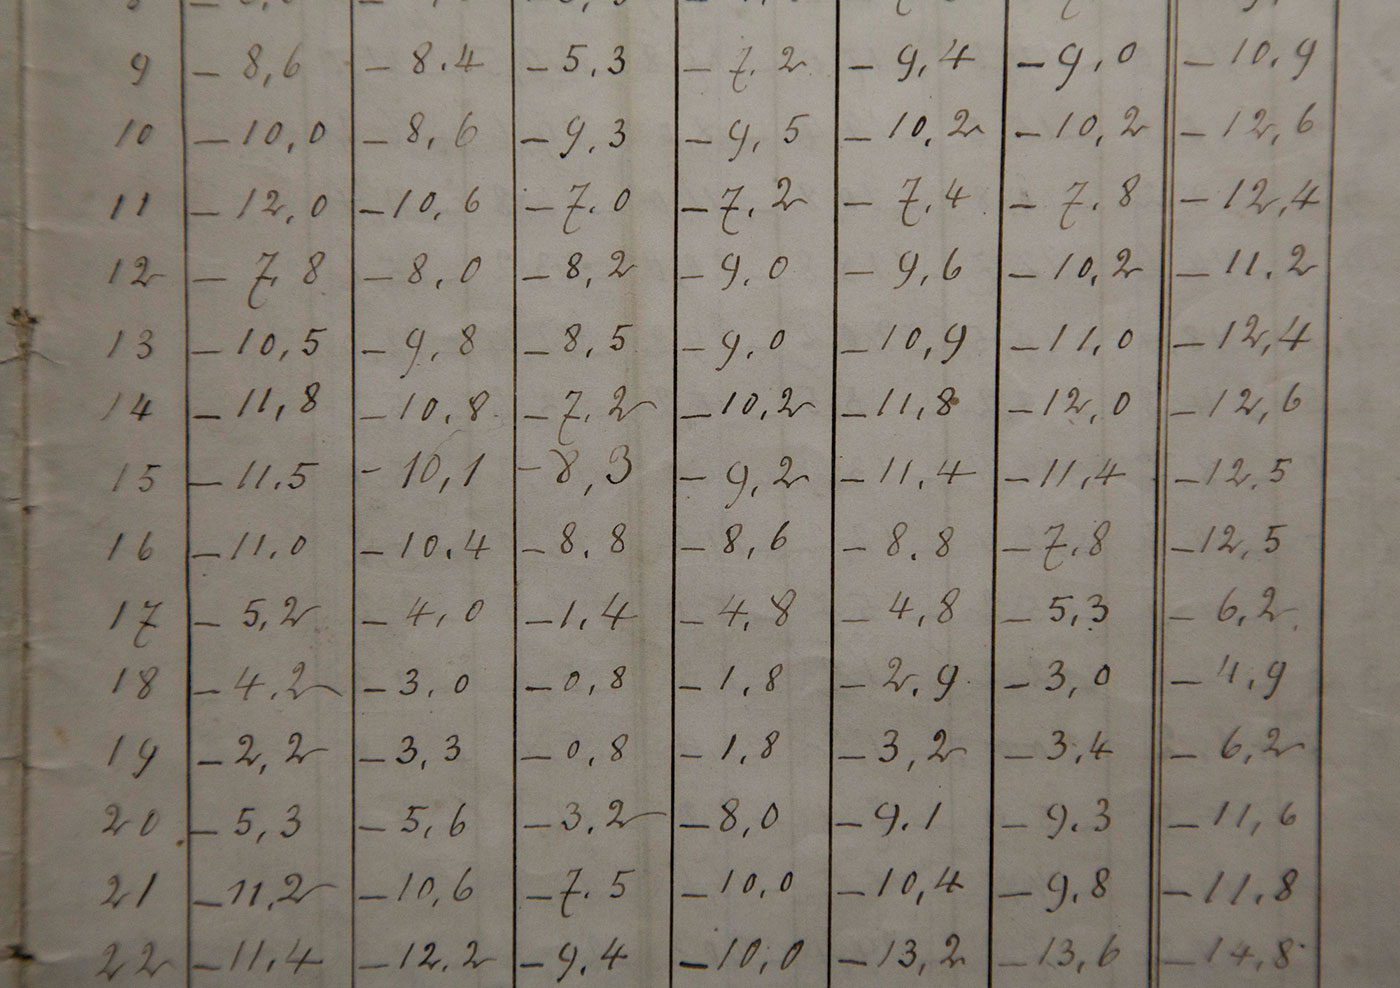 9 – 8,6 – 8.4 – 5,3 – 7.2 – 9,4 – 9,0 – 10,9
10 – 10,0 – 8,6 – 9,3 – 9,5 – 10,2 – 10,2 – 12,6
11 – 12,0 – 10,6 – 7.0 – 7,2 – 7,4 – 7.8 – 12,4
12 – 7,8 – 8,0 – 8,2 – 9,0 – 9,6 – 10,2 – 11.2
13 – 10,5 – 9,8 – 8,5 – 9,0 – 10,9 – 11,0 – 12,4
14 – 11,8 – 10,8 – 7,2 – 10,2 – 11,8 – 12,0 – 12,6
15 – 11,5 – 10,1 – 8,3 – 9,2 – 11,4 – 11,4 – 12,5
16 – 11,0 – 10.4 – 8.8 – 8,6 – 8.8 – 7.8 – 12,5
17 – 5,2 – 4,0 – 1,4 – 4,8 – 4,8 – 5,3 – 6,2
18 – 4,2 – 3,0 – 0,8 – 1,8 – 2,9 – 3,0 – 4,9
19 – 2,2 – 3,3 – 0,8 – 1,8 – 3,2 – 3,4 – 6,2
20 – 5,3 – 5,6 – 3,2 – 8,0 – 9.1 – 9.3 – 11,6
21 – 11,2 – 10,6 – 7.5 – 10,0 – 10,4 – 9,8 – 11,8
22 – 11,4 – 12,2 – 9,4 – 10,0 – 13,2 – 13,6 – 14,8